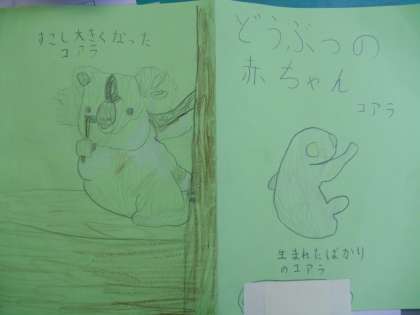 どうぶつの
赤ちゃん
コアラ
生まれたばかり
のコアラ
すこし大きくなった
コアラ